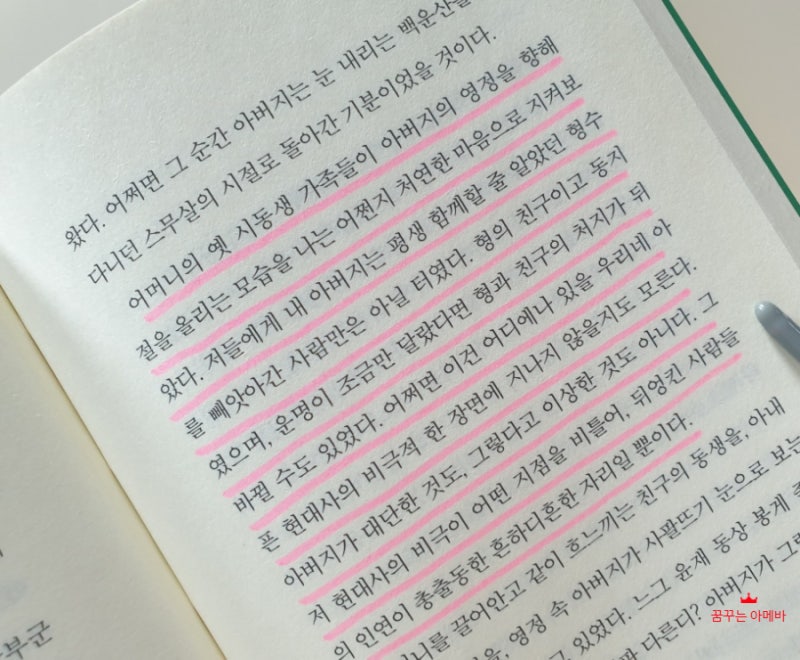 왔다. 어쩌면 그 순간 아버지는 눈 내리는 백운산을
다니던 스무살의 시절로 돌아간 기분이었을 것이다.
어머니의 옛 시동생 가족들이 아버지의 영정을 향해
절을 올리는 모습을 나는 어쩐지 처연한 마음으로 지켜보
았다. 저들에게 내 아버지는 평생 함께할 줄 알았던 형수
를 빼앗아간 사람만은 아닐 터였다. 형의 친구이고 동지
였으며, 운명이 조금만 달랐다면 형과 친구의 처지가 뒤
바뀔 수도 있었다. 어쩌면 이건 어디에나 있을 우리네 아
픈 현대사의 비극적 한 장면에 지나지 않을지도 모른다.
아버지가 대단한 것도, 그렇다고 이상한 것도 아니다. 그
저 현대사의 비극이 어떤 지점을 비틀어, 뒤엉킨 사람들
의 인연이 총출동한 흔하디흔한 자리일 뿐이다.
를 끌어안고 같이 흐느끼는 친구의 동생을, 아내
영정 속 아버지가 사팔뜨기 눈으로 보는
있었다. 느그 윤재 동상 봉게
다른디? 아버지가
부군
꿈꾸는 아메바